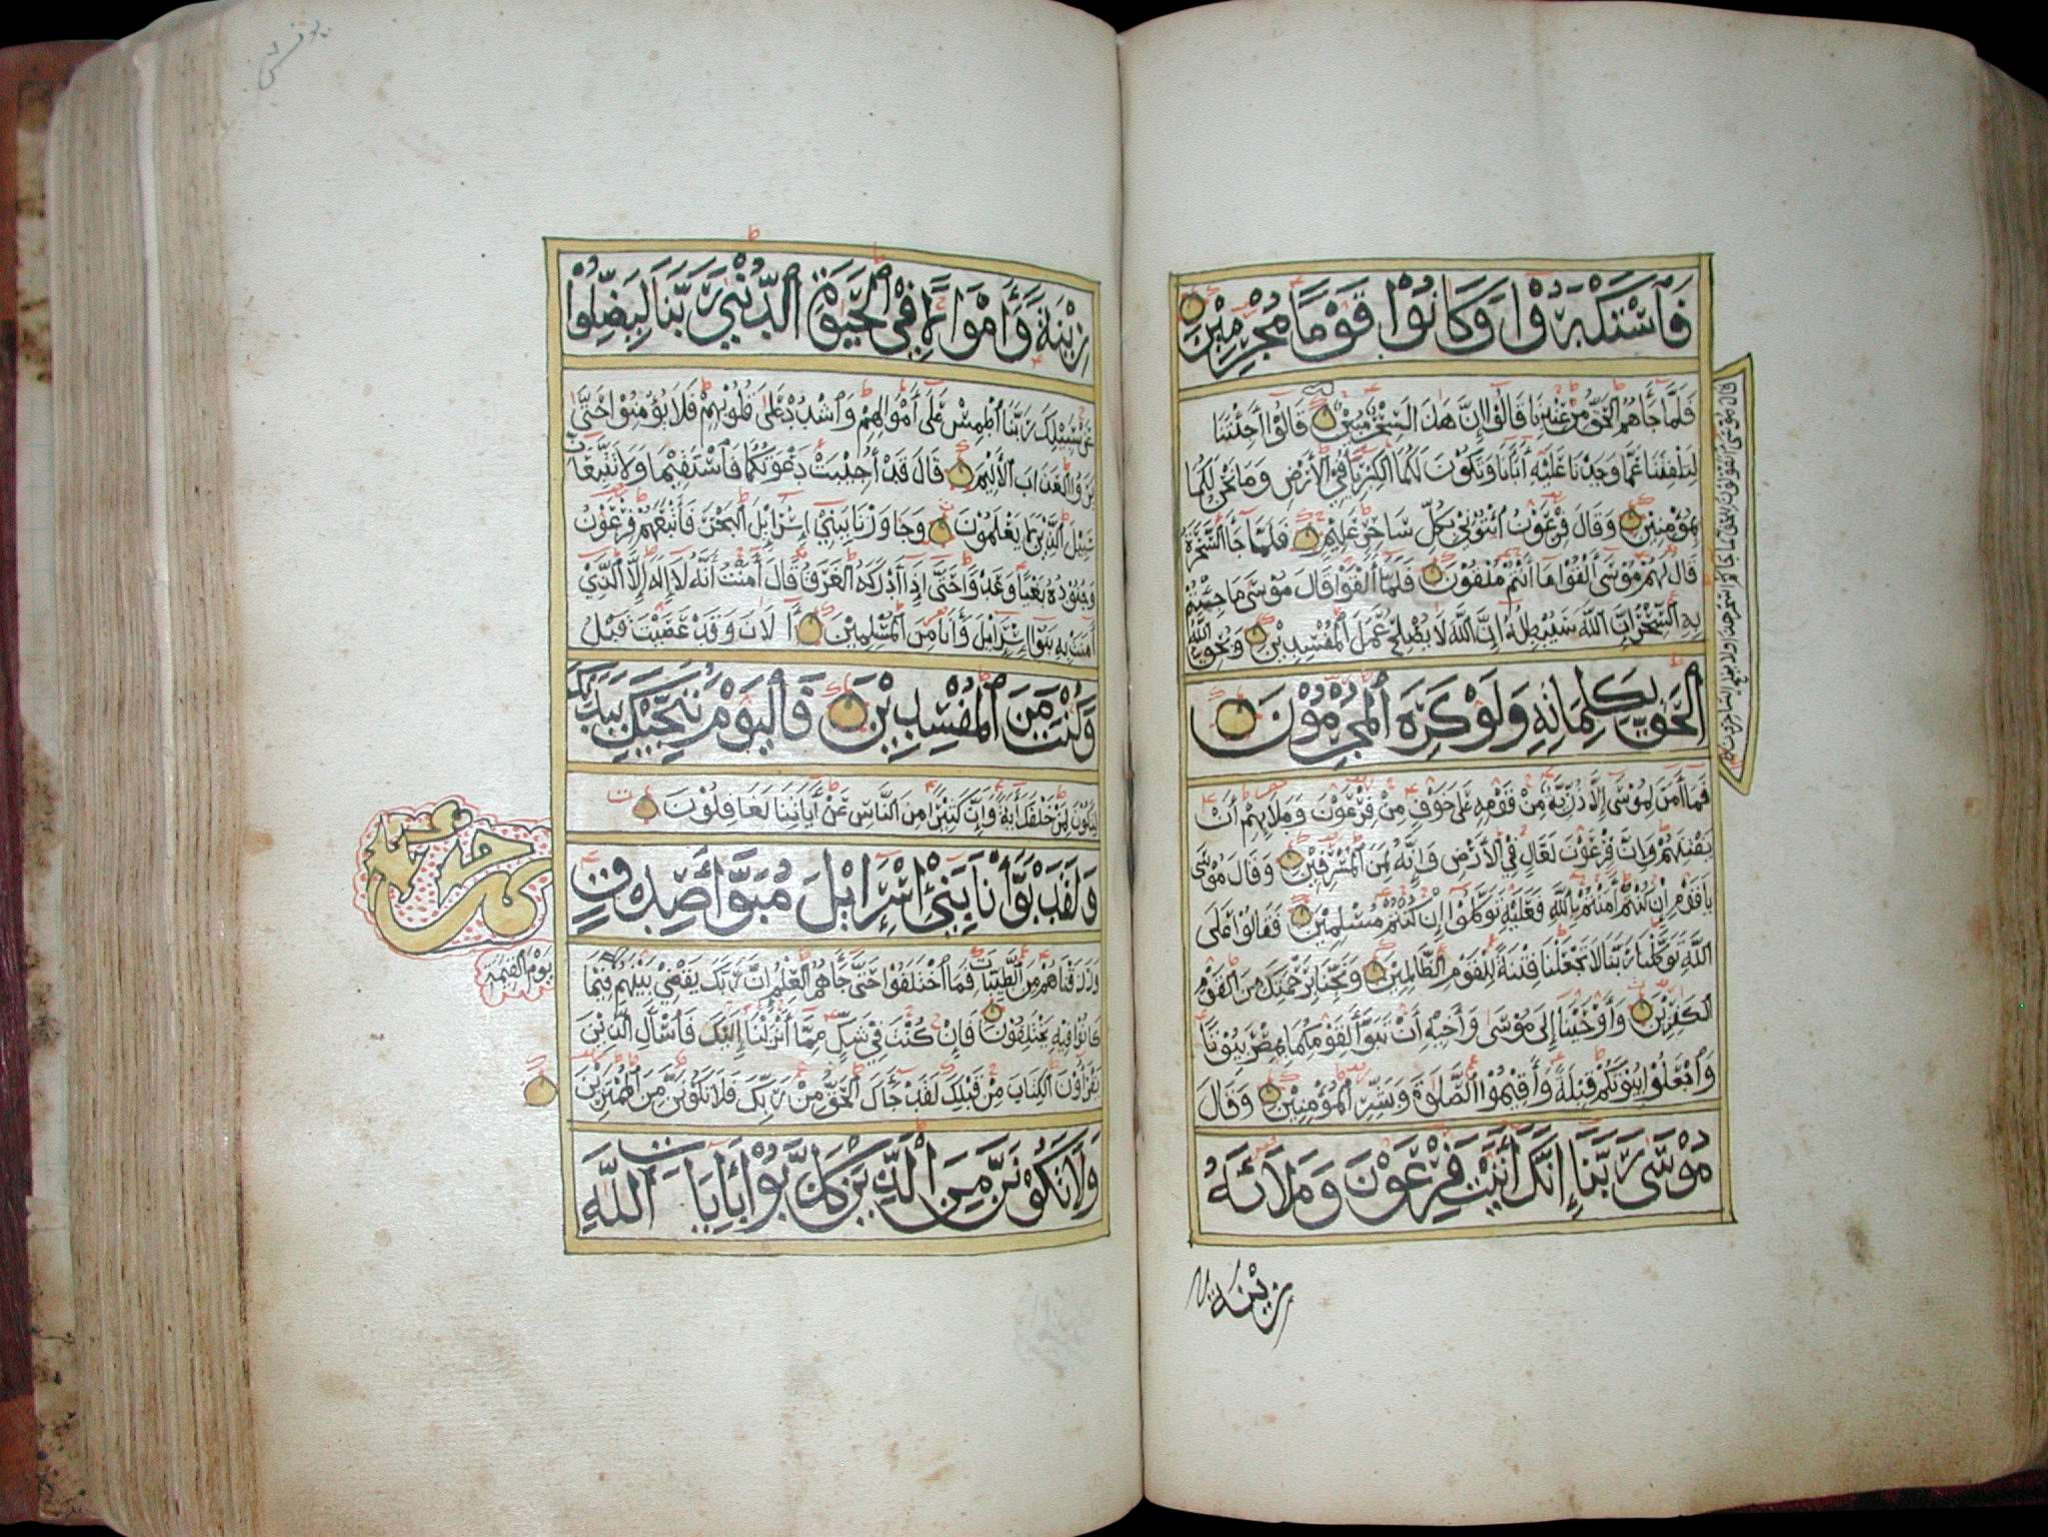 فَاسْتَكْبَرُوا وَكَانُوا قَوْمًا مُجْرِمِينَ
فَلَمَّا جَاءَهُمُ الْحَقُّ مِنْ عِنْدِنَا قَالُوا إِنَّ هَذَا لَسِحْرٌ مُبِينٌ قَالُوا أَجِئْتَنَا
لِتَلْفِتَنَا عَمَّا وَجَدْنَا عَلَيْهِ آبَاءَنَا وَتَكُونَ لَكُمَا الْكِبْرِيَاءُ فِي الْأَرْضِ وَمَا نَحْنُ لَكُمَا
بِمُؤْمِنِينَ وَقَالَ فِرْعَوْنُ ائْتُونِي بِكُلِّ سَاحِرٍ عَلِيمٍ فَلَمَّا جَاءَ السَّحَرَةُ
قَالَ لَهُمْ مُوسَى أَلْقُوا مَا أَنْتُمْ مُلْقُونَ فَلَمَّا أَلْقَوْا قَالَ مُوسَى مَا جِئْتُمْ
بِهِ السِّحْرُ إِنَّ اللَّهَ سَيُبْطِلُهُ إِنَّ اللَّهَ لَا يُصْلِحُ عَمَلَ الْمُفْسِدِينَ وَيُحِقُّ اللَّهُ
الْحَقَّ بِكَلِمَاتِهِ وَلَوْ كَرِهَ الْمُجْرِمُونَ
فَمَا آمَنَ لِمُوسَى إِلَّا ذُرِّيَّةٌ مِنْ قَوْمِهِ عَلَى خَوْفٍ مِنْ فِرْعَوْنَ وَمَلَإِيْهِمْ أَنْ
يَفْتِنَهُمْ وَإِنَّ فِرْعَوْنَ لَعَالٍ فِي الْأَرْضِ وَإِنَّهُ لَمِنَ الْمُسْرِفِينَ وَقَالَ مُوسَى
يَا قَوْمِ إِنْ كُنْتُمْ آمَنْتُمْ بِاللَّهِ فَعَلَيْهِ تَوَكَّلُوا إِنْ كُنْتُمْ مُسْلِمِينَ فَقَالُوا عَلَى
اللَّهِ تَوَكَّلْنَا رَبَّنَا لَا تَجْعَلْنَا فِتْنَةً لِلْقَوْمِ الظَّالِمِينَ وَنَجِّنَا بِرَحْمَتِكَ مِنَ الْقَوْمِ
الْكَفِرِينَ وَأَوْحَيْنَا إِلَى مُوسَى وَأَخِيهِ أَنْ تَبَوَّأَ لِقَوْمِكُمَا بِمِصْرَ بُيُوتًا
وَاجْعَلُوا بُيُوتَكُمْ قِبْلَةً وَأَقِيمُوا الصَّلَوةَ وَبَشِّرِ الْمُؤْمِنِينَ وَقَالَ
مُوسَى رَبَّنَا إِنَّكَ آتَيْتَ فِرْعَوْنَ وَمَلَائَهُ
زينة
قال موسى اتقولون للحق لما جاءكم اسحر هذا ولا يفلح الساحرون
يونس
زِينَةً وَأَمْوَالًا فِي الْحَيَوةِ الدُّنْيَا رَبَّنَا لِيُضِلُّوا
عَنْ سَبِيلِكَ رَبَّنَا اطْمِسْ عَلَى أَمْوَالِهِمْ وَاشْدُدْ عَلَى قُلُوبِهِمْ فَلَا يُؤْمِنُوا حَتَّى
يَرَوُا الْعَذَابَ الْأَلِيمَ قَالَ قَدْ أُجِيبَتْ دَعْوَتُكُمَا فَاسْتَقِيمَا وَلَا تَتَّبِعَانِّ
سَبِيلَ الَّذِينَ لَا يَعْلَمُونَ وَجَاوَزْنَا بِبَنِي إِسْرَائِيلَ الْبَحْرَ فَأَتْبَعَهُمْ فِرْعَوْنُ
وَجُنُودُهُ بَغْيًا وَعَدْوًا حَتَّى إِذَا أَدْرَكَهُ الْغَرَقُ قَالَ آمَنْتُ أَنَّهُ لَا إِلَهَ إِلَّا الَّذِي
آمَنَتْ بِهِ بَنُوا إِسْرَائِيلَ وَأَنَا مِنَ الْمُسْلِمِينَ آلْآنَ وَقَدْ عَصَيْتَ قَبْلُ
وَكُنْتَ مِنَ الْمُفْسِدِينَ فَالْيَوْمَ نُنَجِّيكَ بِبَدَنِكَ
لِتَكُونَ لِمَنْ خَلْفَكَ آيَةً وَإِنَّ كَثِيرًا مِنَ النَّاسِ عَنْ آيَاتِنَا لَغَافِلُونَ
وَلَقَدْ بَوَّأْنَا بَنِي إِسْرَائِيلَ مُبَوَّأَ صِدْقٍ
وَرَزَقْنَاهُمْ مِنَ الطَّيِّبَاتِ فَمَا اخْتَلَفُوا حَتَّى جَاءَهُمُ الْعِلْمُ إِنَّ رَبَّكَ يَقْضِي بَيْنَهُمْ فِيمَا
كَانُوا فِيهِ يَخْتَلِفُونَ فَإِنْ كُنْتَ فِي شَكٍّ مِمَّا أَنْزَلْنَا إِلَيْكَ فَاسْأَلِ الَّذِينَ
يَقْرَأُونَ الْكِتَابَ مِنْ قَبْلِكَ لَقَدْ جَاءَكَ الْحَقُّ مِنْ رَبِّكَ فَلَا تَكُونَنَّ مِنَ الْمُمْتَرِينَ
وَلَا تَكُونَنَّ مِنَ الَّذِينَ كَذَّبُوا بِآيَاتِ اللَّهِ
يوم القيمة